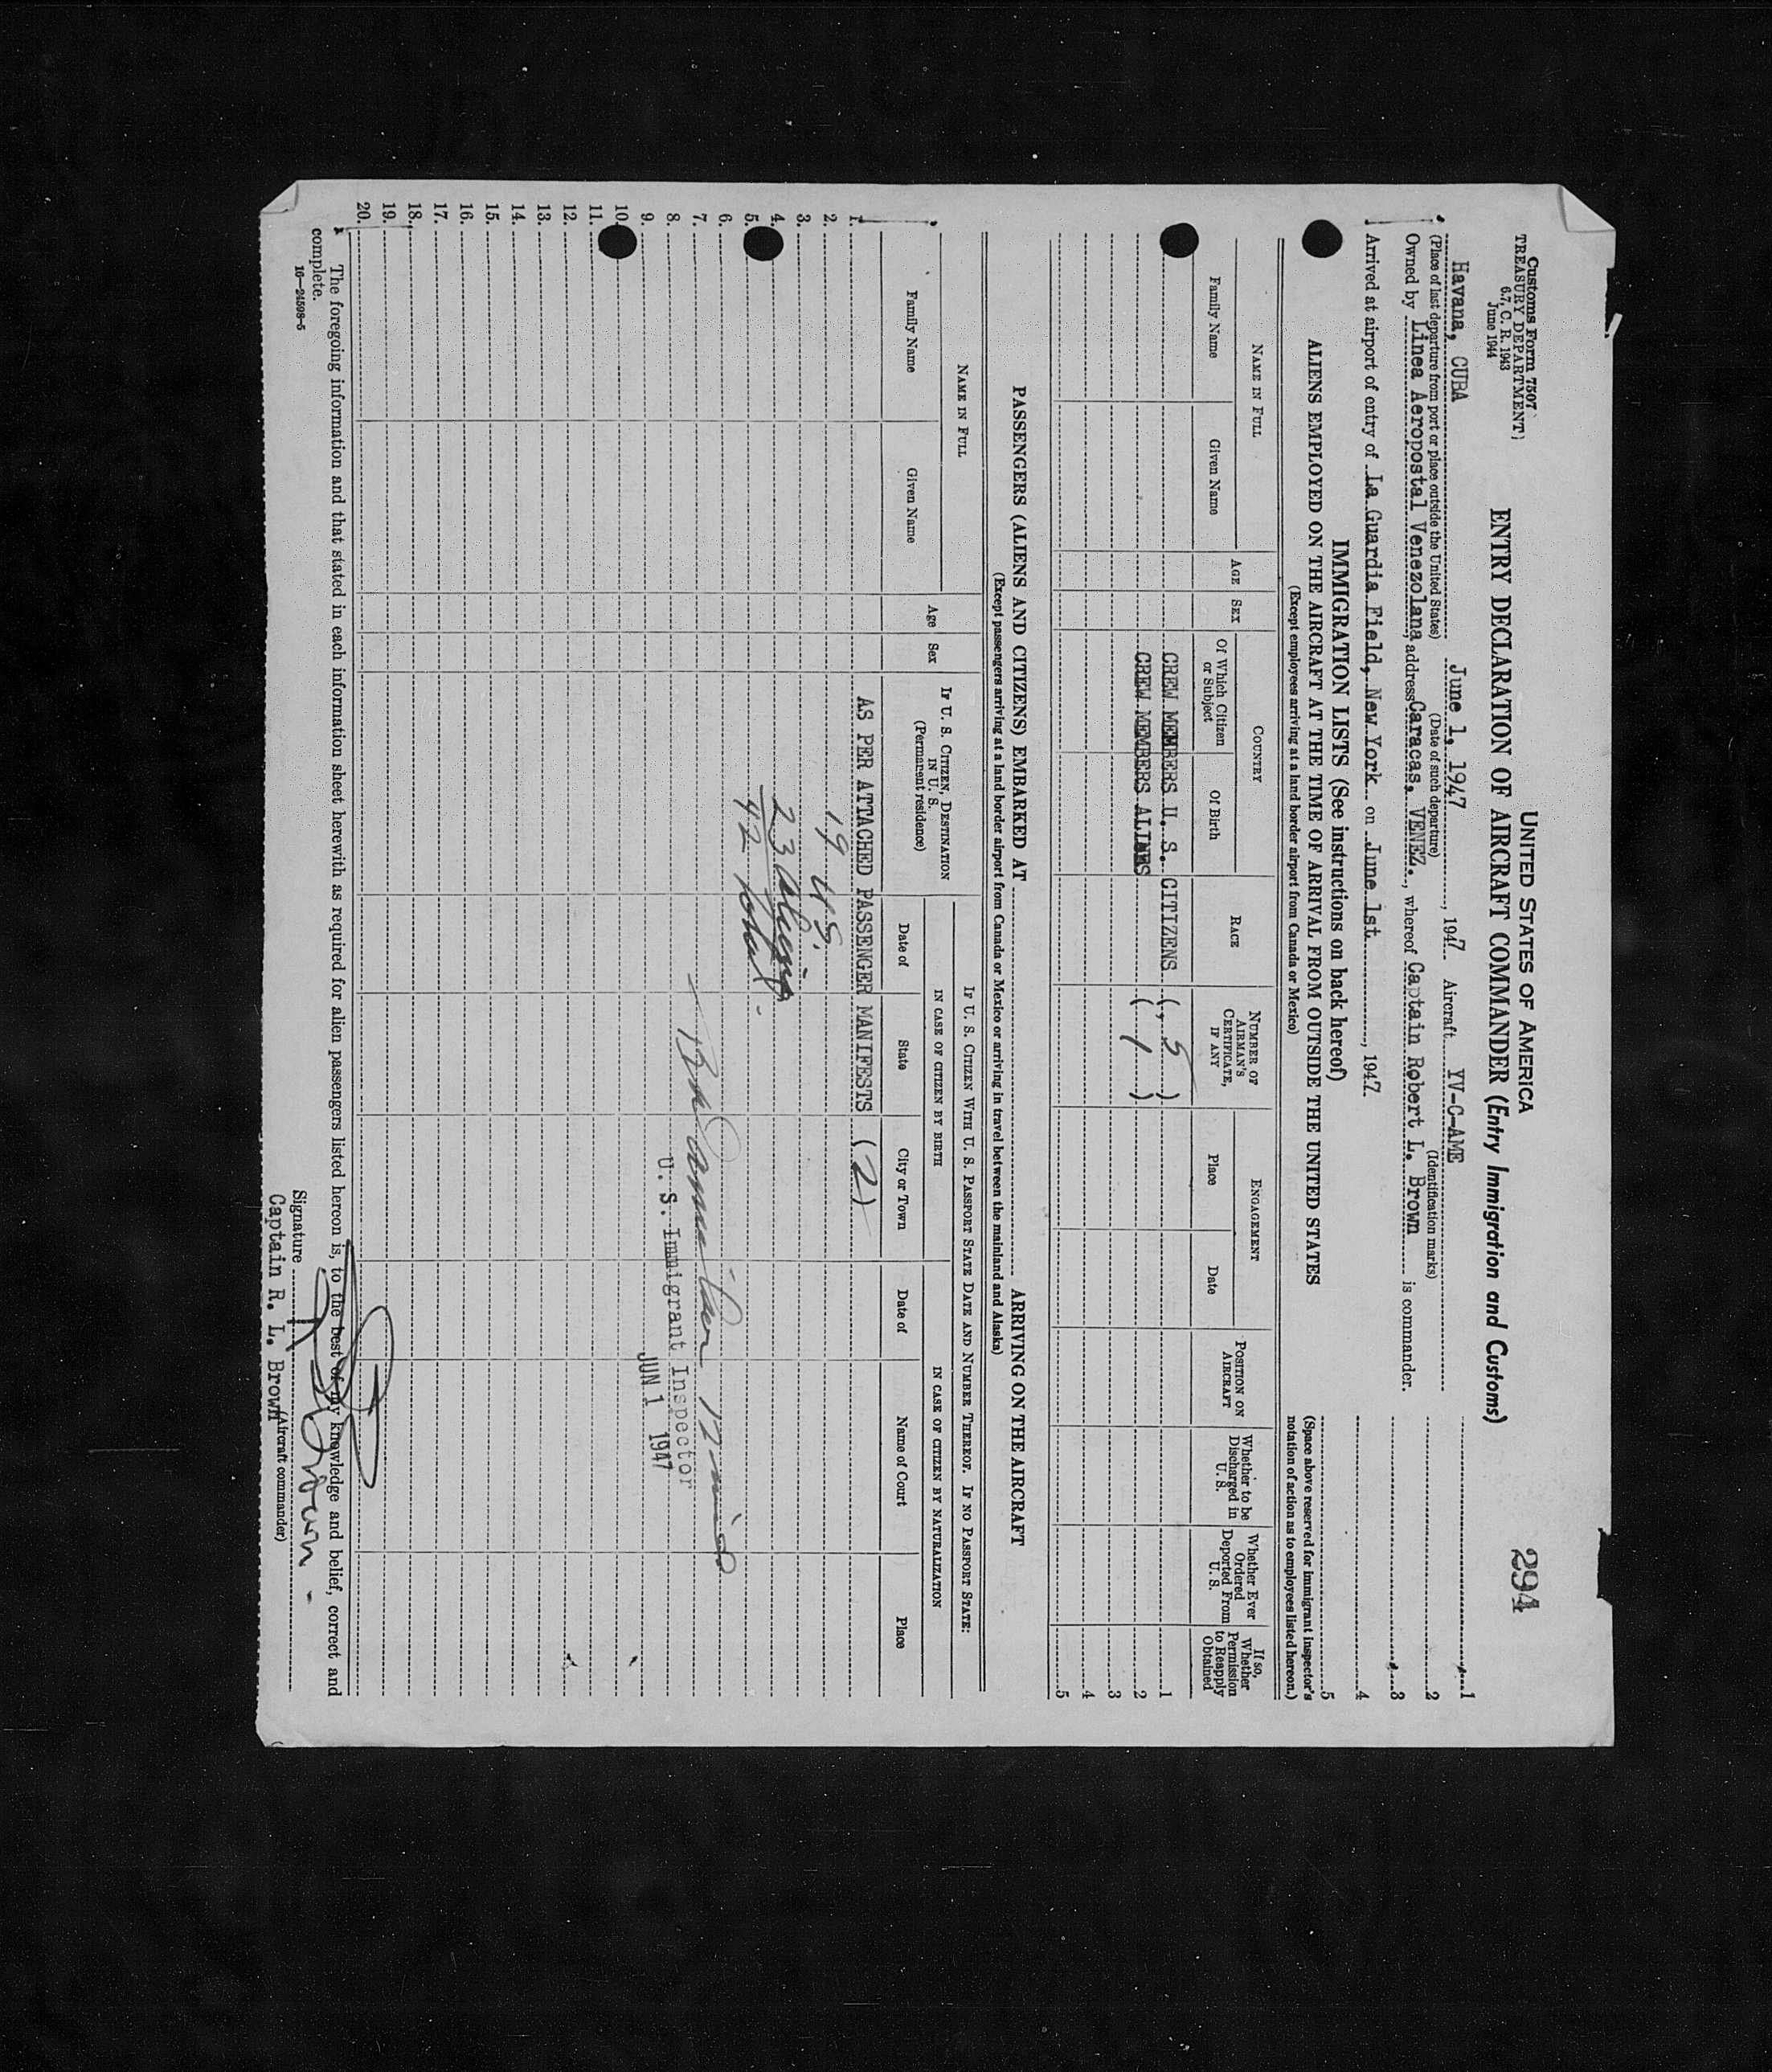 Customs Form 7507
TREASURY DEPARTMENT
6.7, C. R. 1943
June 1944
294
UNITED STATES OF AMERICA
ENTRY DECLARATION OF AIRCRAFT COMMANDER (Entry, Immigration and Customs)
Havana, CUBA June 1, 1947, 1947. Aircraft YV-C-AME
(Place of last departure from port or place outside the United States) (Date of such departure) (Identification marks)
Owned by Linea Aeropostal Venezolana, address Caracas, VENEZ., whereof Captain Robert L. Brown is commander.
Arrived at airport of entry of La Guardia Field, New York on June 1st, 1947.
1
2
3
4
5
IMMIGRATION LISTS (See instructions on back hereof)
(Space above reserved for immigrant inspector's notation of action as to employees listed hereon.)
ALIENS EMPLOYED ON THE AIRCRAFT AT THE TIME OF ARRIVAL FROM OUTSIDE THE UNITED STATES
(Except employees arriving at a land border airport from Canada or Mexico)
NAME IN FULL
Family Name
Given Name
AGE
SEX
COUNTRY
Of Which Citizen or Subject
Of Birth
RACE
NUMBER OF AIRMAN'S CERTIFICATE, IF ANY
ENGAGEMENT
Place
Date
POSITION ON AIRCRAFT
Whether to be Discharged in U. S.
Whether Ever Ordered Deported From U. S.
If so, Whether Permission to Reapply Obtained
CREW MEMBERS U. S. CITIZENS ( 5 ) 1
CREW MEMBERS ALIENS ( 1 ) 2
3
4
5
PASSENGERS (ALIENS AND CITIZENS) EMBARKED AT ARRIVING ON THE AIRCRAFT
(Except passengers arriving at a land border airport from Canada or Mexico or arriving in travel between the mainland and Alaska)
NAME IN FULL
Family Name
Given Name
Age
Sex
IF U. S. CITIZEN, DESTINATION IN U. S. (Permanent residence)
IF U. S. CITIZEN WITH U. S. PASSPORT STATE DATE AND NUMBER THEREOF. IF NO PASSPORT STATE:
IN CASE OF CITIZEN BY BIRTH
IN CASE OF CITIZEN BY NATURALIZATION
Date of
State
City or Town
Date of
Name of Court
Place
1. AS PER ATTACHED PASSENGER MANIFESTS (2)
2. 19 U.S.
3.
4. 23 Aliens
5. 42 total -
6.
7.
8. U. S. Immigrant Inspector
9. JUN 1 1947
10.
11.
12.
13.
14.
15.
16.
17.
18.
19.
20.
The foregoing information and that stated in each information sheet herewith as required for alien passengers listed hereon is, to the best of my knowledge and belief, correct and
complete.
16—24598-5
Signature R L Brown
(Aircraft commander)
Captain R. L. Brown